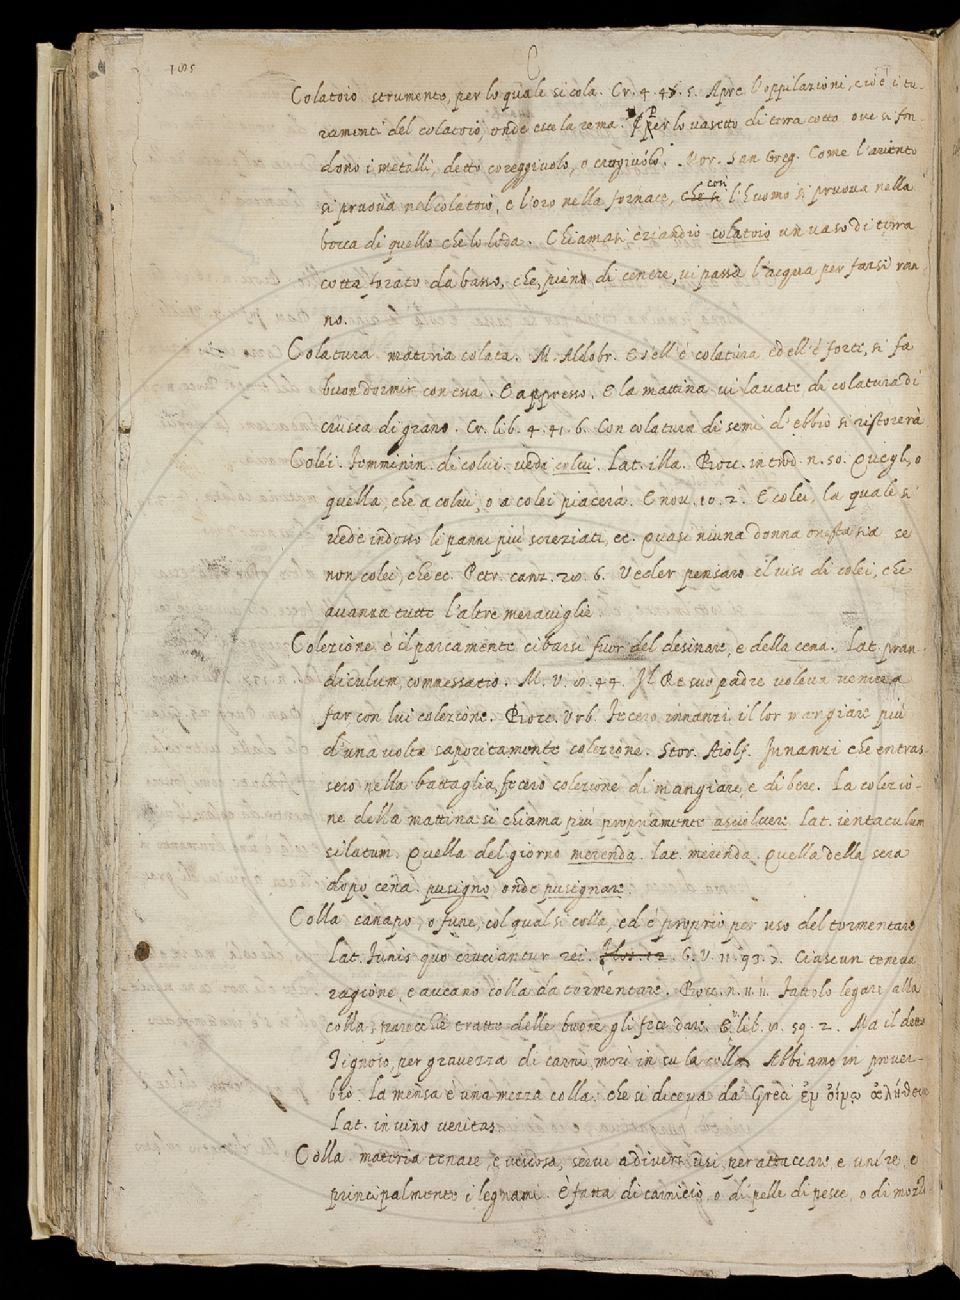 185
C
Colatoio strumento, per lo quale si cola. Cr. 4. 48. 5. Apre l'oppilazioni, cioè i tu-
ramenti del colatoio, onde esce la rema. Per lo vasetto di terra cotto ove si fon-
dono i metalli, detto coreggiuolo, o crogiuolo. Mor. San Greg. Come l'ariento
si pruova nel colatoio, e l'oro nella fornace, che si così l'huomo si pruova nella
bocca di quello che lo loda. Chiamasi eziandio colatoio un vaso di terra
cotta forato da basso, che, pieno di cenere, vi passa l'acqua per farsi ran-
no.
Colatura. materia colata. M. Aldobr. E s'ell'è colatura ed ell'è forte, si fa
buon dormir con essa. E appresso. E la mattina vi lavate di colatura di
crusca di grano. Cr. lib. 4. 41. 6. Con colatura di semi d'ebbio si ristorerà
Colei. femminin. di colui. vedi colui. Lat. illa. Bocc. introd. n. 50. Quegli, o
quella, che a colui, o a colei piacerà. E nov. 10. 2. E colei, la quale si
vede indosso li panni più screziati, ec. Quasi niuna donna onesta sia se
non colei, che ec. Petr. canz. 28. 6. Veder pensaro il viso di colei, che
avanza tutte l'altre meraviglie
Colezione è il parcamente cibarsi fuor del desinare, e della cena. Lat. pran-
diculum, commessatio. M. V. 8. 44. Il Re suo padre voleva venire a
far con lui colezione. Bocc. Urb. fecero innanzi il lor mangiare più
d'una volta saporitamente colezione. Stor. Aiolf. Innanzi che entras-
sero nella battaglia, fecero colezione di mangiare, e di bere. La colezio-
ne della mattina si chiama più propriamente asciolvere Lat. ientaculum
silatum. Quella del giorno merenda. lat. merenda. Quella della sera
dopo cena. pusigno onde pusignare
Colla canapo, o fune, col qual si colla, ed è proprio per uso del tormentare
Lat. funis quo cruciantur rei. G. V. 11. 93. 7. Ciascun teneva
ragione, e aveano colla da tormentare. Bocc. n. 11. 11. fattolo legare alla
colla, parecchie tratte delle buone gli fece dare. E lib. 8. 59. 2. Ma il detto
Signore, per gravezza di carni, morì in su la colla. Abbiamo in prover-
bio. La mensa è una mezza colla. che si diceva da' Greci ἐν οἴνῳ ἀλήθεια
Lat. in vino veritas
Colla materia tenace, e viscosa, serve a diversi usi, per attaccare e unire, e
principalmente i legnami. è fatta di carniccio, o di pelle di pesce, o di